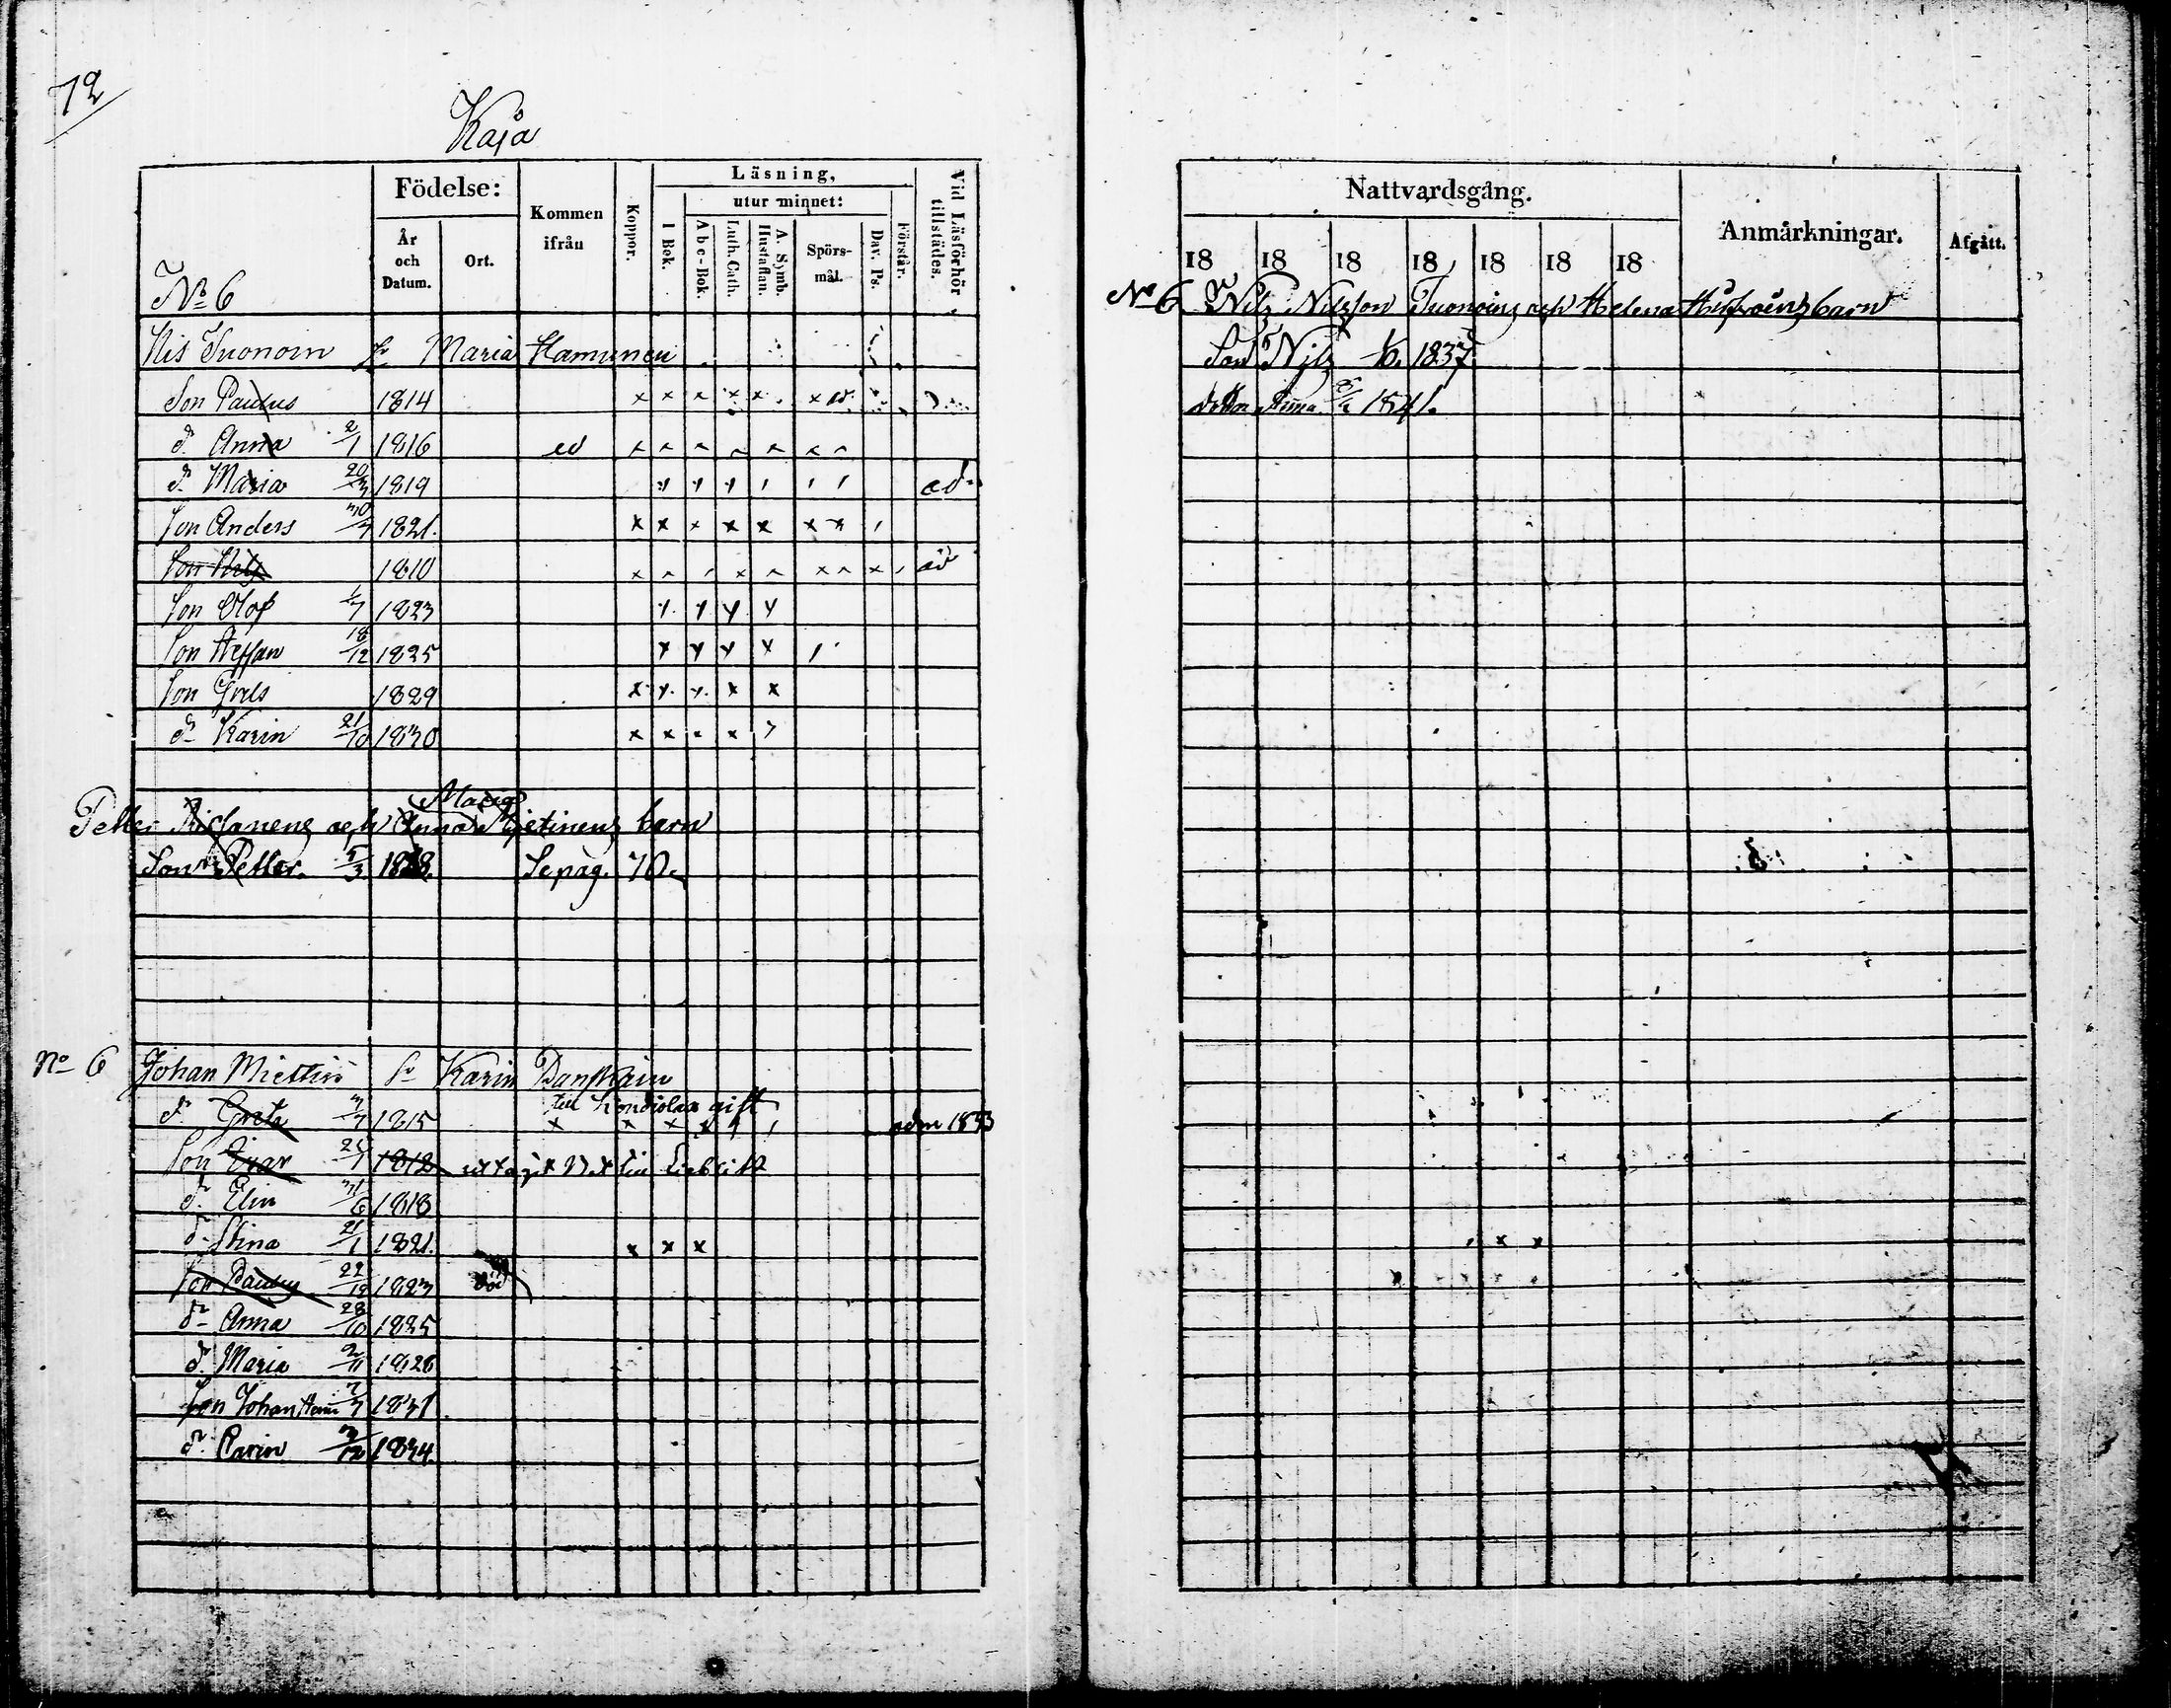 72
Kaja
Födelse:
Kommen ifrån
Koppor.
Läsning,
utur minnet:
I Bok.
Abc-Bok.
Luth. Cath.
A. Symb. Hustaflan.
Spörs-mål.
Dav. Ps.
Förstår.
Vid Läsförhör tillstädes.
År och Datum.
Ort.
No 6
Nils Tuonoin hr Maria Hamunen
Son Paulus 1814
dr Anna 2/1 1816
dr Maria 20/3 1819
Son Anders 30/7 1821.
Son Nils 1810
Son Olof 1/7 1823
Son Steffan 18/12 1825
Son Grels 1829
dr Karin 21/10 1830
Maria
Petter och Anna Mjetinens barn
Son Petter. 5/3 1818. Se pag. 70.
No 6 Johan Miettin hr Karin Danskain
till Kondiolax gift
dr Greta 3/7 1815 adm 1833
Son Ivar 25/1 1812 uttagit
dr Elin 31/6 1818
dr Stina 21/1 1821.
Son Paulus 22/12 1823 död
dr Anna 28/10 1825
dr Maria 2/11 1826
Son Johan 7/7 1831
dr Carin 3/12 1834.
Nattvardsgång.
Anmärkningar.
Afgått.
18 18 18 18 18 18 18
No 6 Nils Nilsson Tuonoins och Helena barn
Son Nils 1837
dottr Anna 1841.